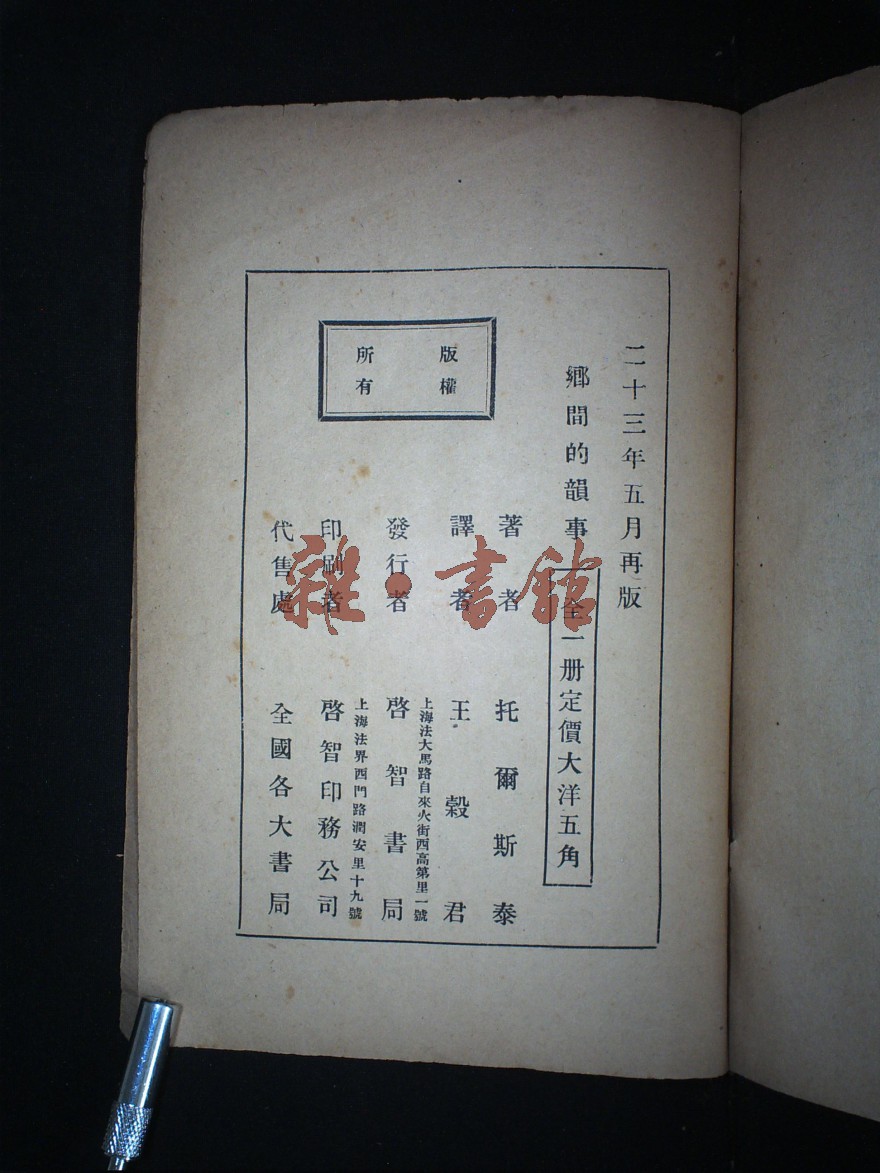 二十三年五月再版
鄉間的韻事
全一册定價大洋五角
著者 托爾斯泰
譯者 王穀君
上海法大馬路自來火街西高第里一號
發行者 啓智書局
上海法界西門路潤安里十九號
印刷者 啓智印務公司
代售處 全國各大書局
版權
所有
雜·書館